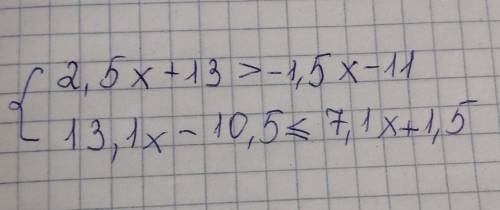 { 2,5x+13>-1,5x-11
13,1x-10,5≤7,1x+1,5